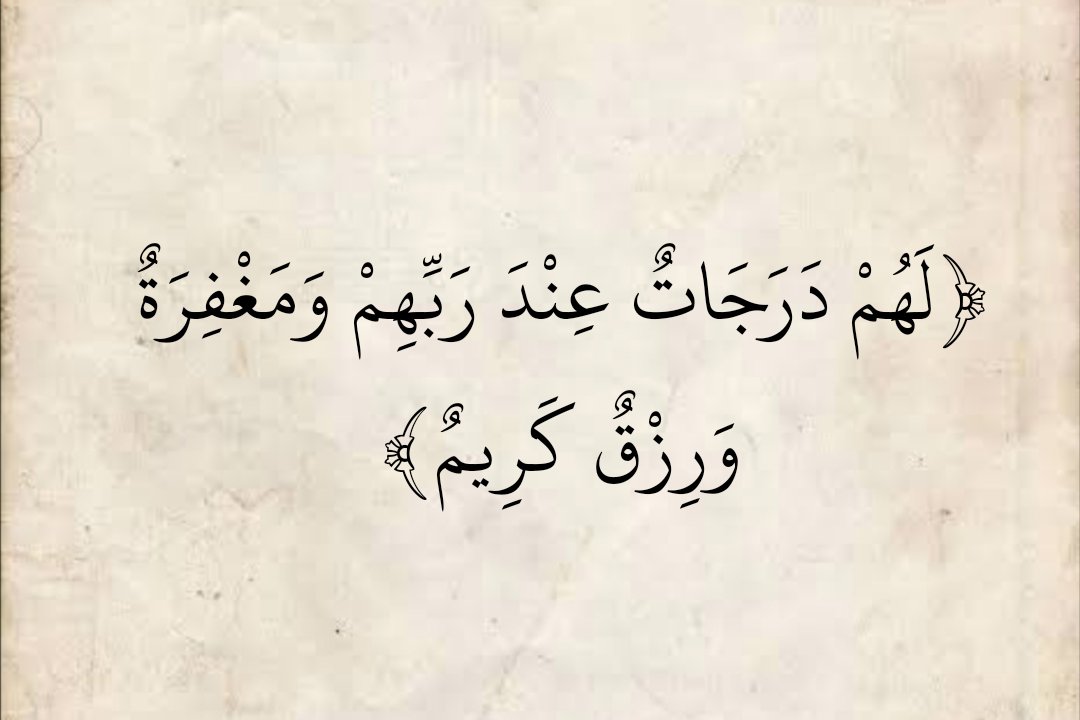 ﴿لَهُمْ دَرَجَاتٌ عِنْدَ رَبِّهِمْ وَمَغْفِرَةٌ
وَرِزْقٌ كَرِيمٌ﴾